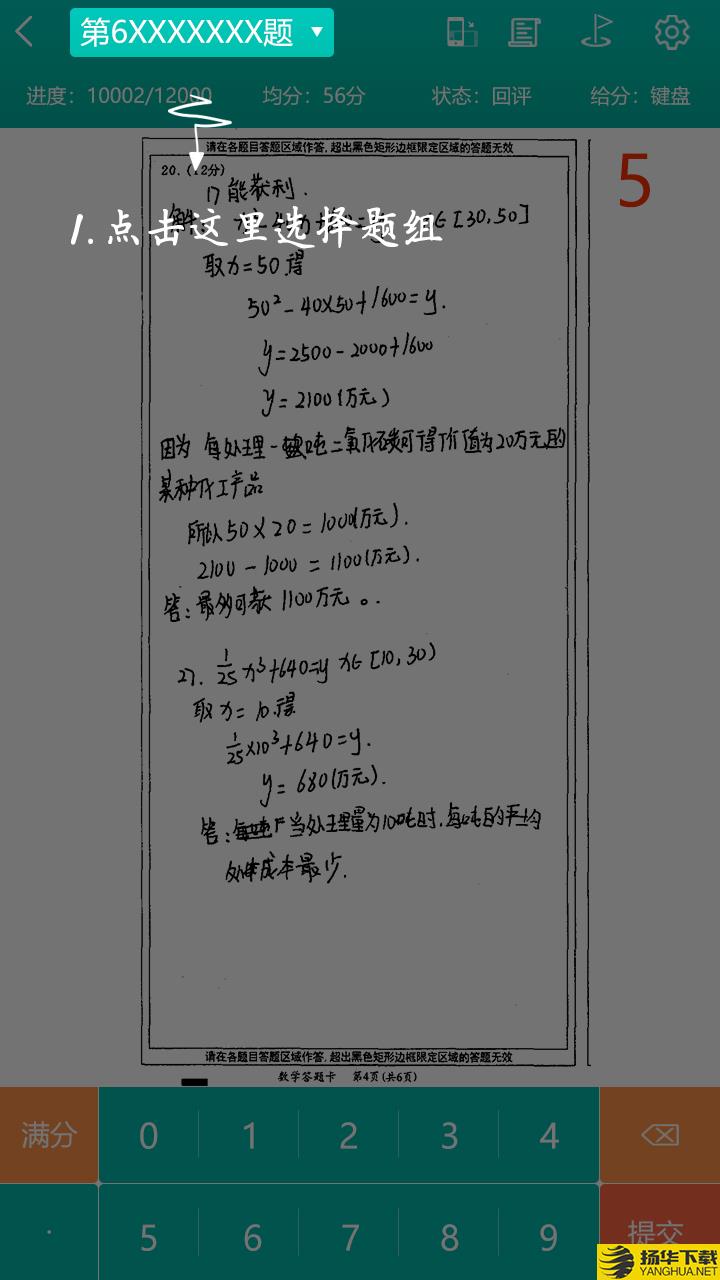 第6XXXXXXX题
进度：10002/12000 均分：56分 状态：回评 给分：键盘
请在各题目答题区域作答，超出黑色矩形边框限定区域的答题无效
20.（12分）
5
1) 能获利.
∈[30,50]
1.点击这里选择题组
取x=50得
50²-40×50+1600=y.
y=2500-2000+1600
y=2100(万元)
因为 每处理一吨二氧化碳可得价值为20万元的
某种化工产品
所以50×20=1000(万元).
2100-1000=1100(万元).
答:最多可获 1100万元。.
2). 1/25 x³+640=y x∈[10,30)
取x=10.得
1/25×10³+640=y.
y=680(万元).
答: 当处理量为10吨时.每吨的平均
处理成本最少.
请在各题目答题区域作答，超出黑色矩形边框限定区域的答题无效
数学答题卡 第4页(共6页)
满分 0 1 2 3 4
. 5 6 7 8 9 提交
扬华下载
YANGHUA.NET